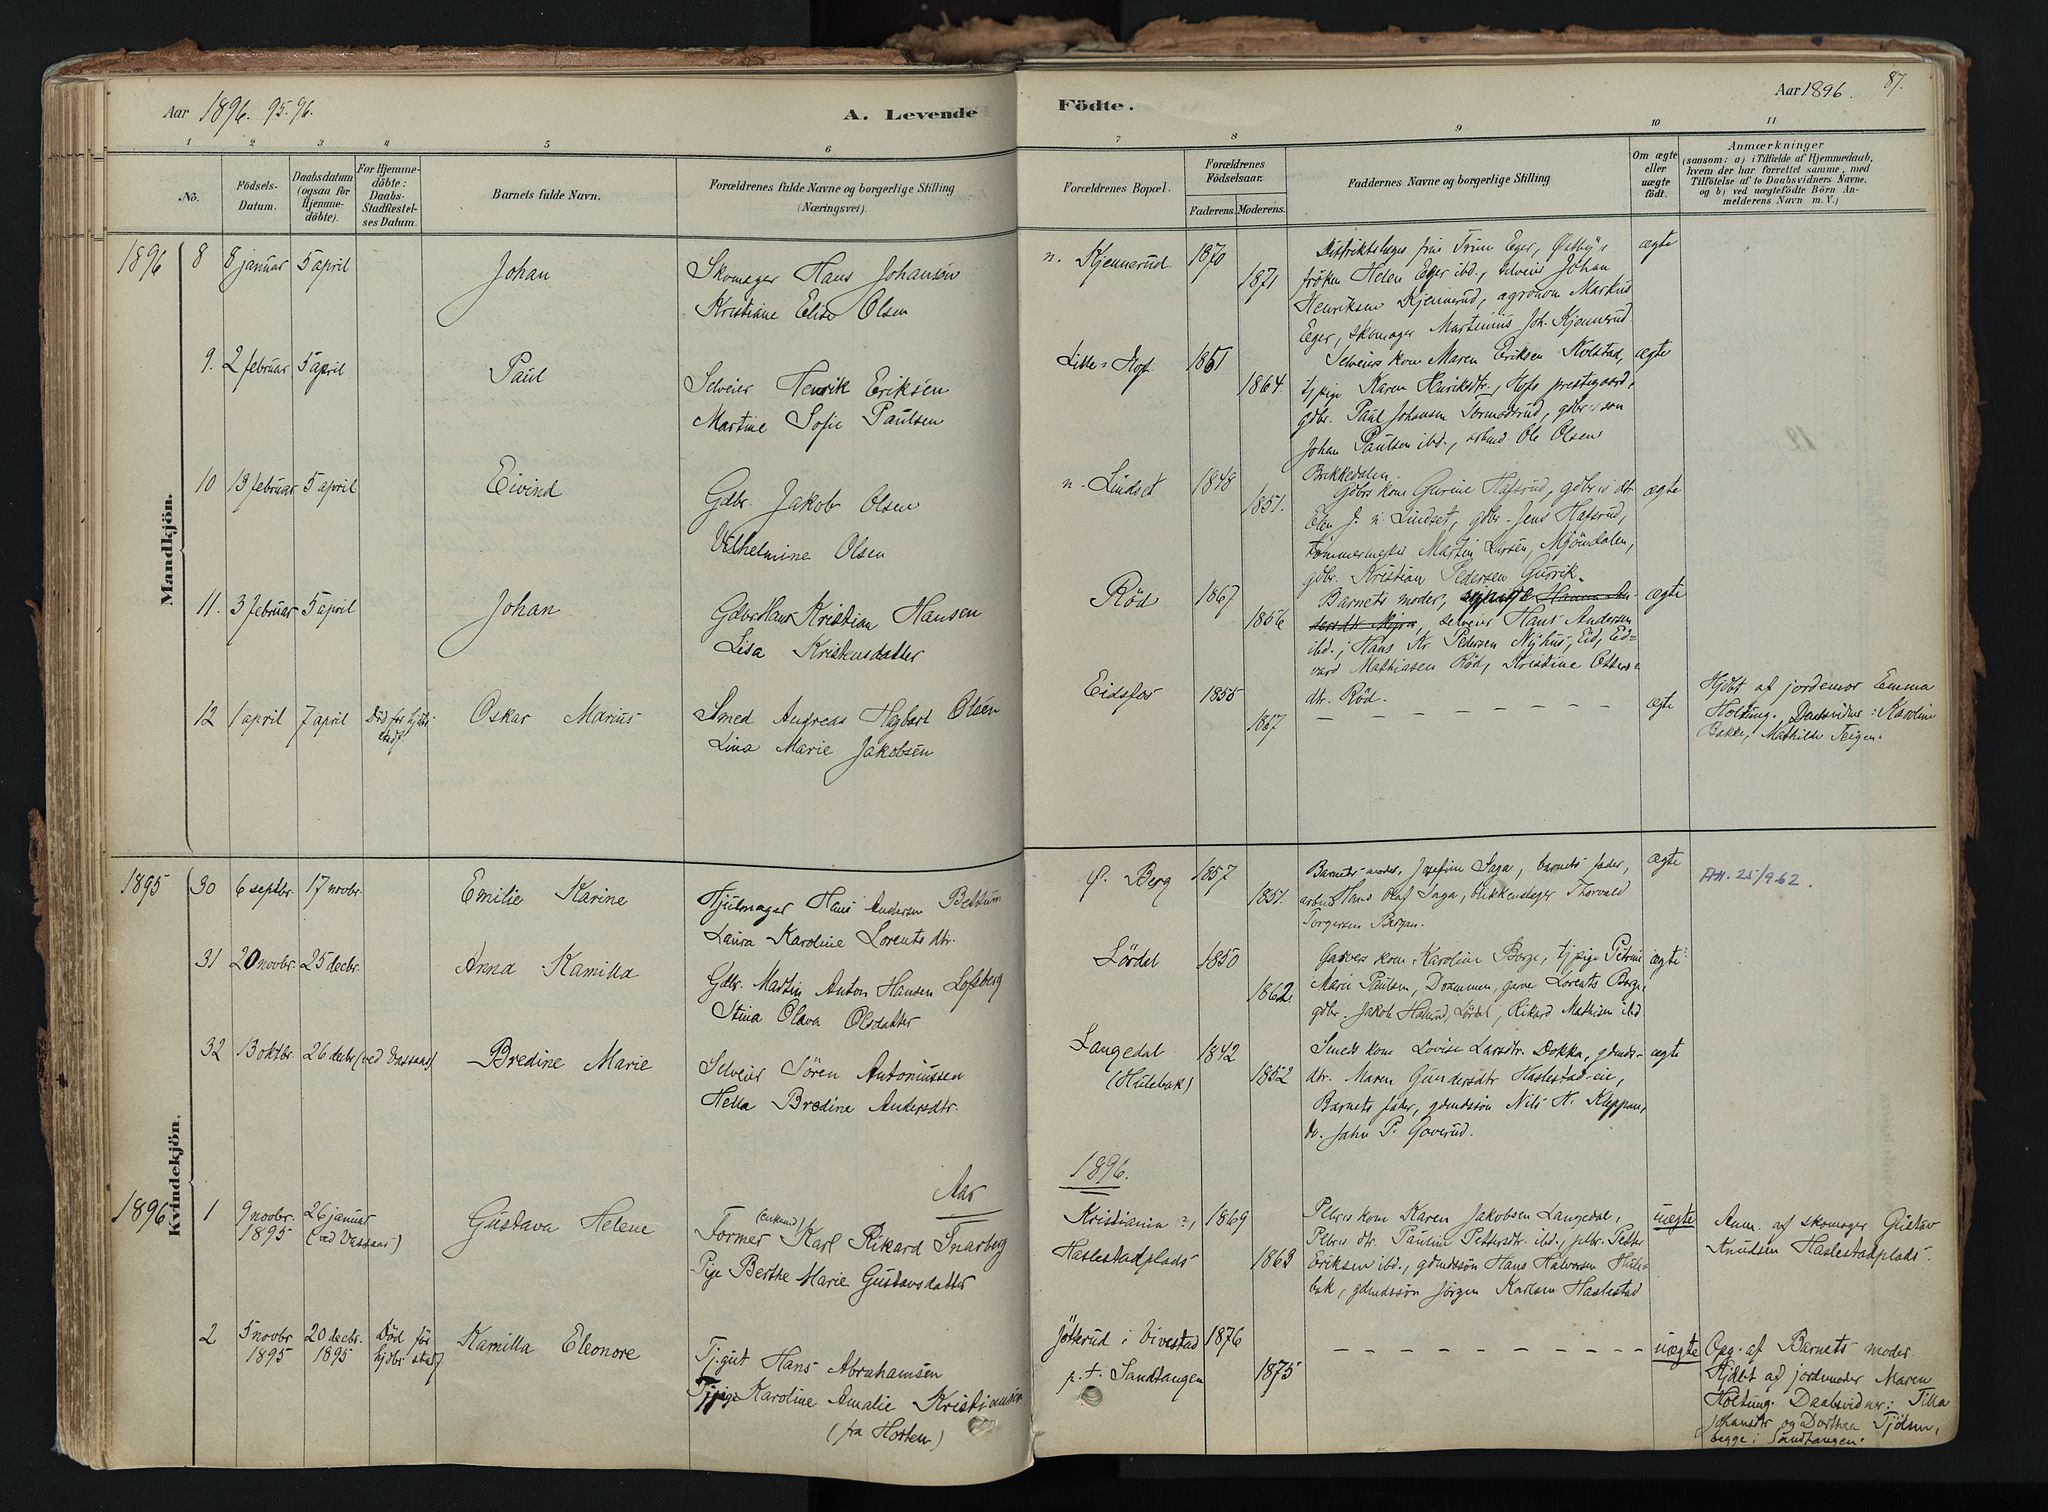 Aar 1896. 95. 96.
A. Levende
Födte.
Aar 1896.
87.
1 2 3 4 5 6 7 8 9 10 11
No.
Födsels-Datum.
Daabsdatum (ogsaa för Hjemmedöbte).
For Hjemmedöbte: Daabs-Stadfæstelses Datum.
Barnets fulde Navn.
Forældrenes fulde Navne og borgerlige Stilling
(Næringsvei).
Forældrenes Bopæl.
Forældrenes Födselsaar.
Faderens. Moderens.
Faddernes Navne og borgerlige Stilling
Om ægte eller uægte födt.
Anmærkninger
(saasom: a) i Tilfælde af Hjemmedaab,
hvem der har forrettet samme, med
Tilföielse af to Daabsvidners Navne.
og b) ved uægtefödte Börn Anmelderens Navn m. V.)
Mandkjön.
1896 8 8 januar 5 april Johan
Skomager Hans Johansen
Kristiane Elise Olsen
n. Kjennerud. 1870
1871
Distriktslæges frue Trine Eger, Østby,
fröken Helen Eger ibd., selveier Johan
Henriksen Kjennerud, agronom Markus
Eger, skomager Martinius Joh. Kjennerud.
ægte
9. 2 februar 5 april Paul
Selveier Henrik Eriksen
Martine Sofie Paulsen
Lille-Hof. 1861
1864.
Selveiers kone Maren Eriksen Kolstad,
tjpige Karen Henriksdtr., Hofs prestegaard,
gdbr. Paul Johansen Tormodsrud, gdbr.s søn
Johan Paulsen ibd., arbmd Ole Olsen
Bakkedalen.
ægte
10 13 februar 5 april Eivind
Gdbr. Jakob Olsen
Vilhelmine Olsen
n. Lindset 1848
1851.
Gdbrs kone Gurine Hafsrud, gdbr.s dtr
Elen J. n. Lindset, gdbr. Jens Hafsrud,
tømmermester Martin Larsen, Mjöndalen,
gdbr. Kristian Pedersen Gusrik.
ægte
11. 3 februar 5 april Johan
Gdbr Hans Kristian Hansen
Lisa Kristensdatter
Röd 1867
1856
Barnets moder,
selveier Hans Andersen
ibd., Hans Kr Pedersen Nyhus, Eid, Edvard Mathiasen Röd, Kristine Ottersdtr. Röd.
ægte
12 1 april 7 april Död for hjdb. stadf.
Oskar Marius
Smed Andreas Hagbart Olsen
Lina Marie Jakobsen
Eidsfos 1855
1867
ægte
Hjdbt af jordemor Emma
Holtung. Daabsvidner: Karoline
Bakke, Mathilde Teigen.
Kvindekjön.
1895 30 6 septbr. 17 novbr. Emilie Karine
Hjulmager Hans Andersen Bettum
Laura Karoline Lorentsdtr.
ø. Berg 1857
1851.
Barnets moder, Josefine Saga, barnets fader,
arbm Hans Olaf Saga, blikkenslager Thorvald
Torgersen Bergan.
ægte
25/9.62.
31 20 novbr. 25 decbr. Anna Kamilla
Gdbr. Martin Anton Hansen Lofsberg
Stina Olava Olsdatter
Lördal 1850
1862.
Garvers kone Karoline Borge, tjpige Petrine
Marie Paulsen, Drammen, garver Lorents Borge,
gdbr. Jakob Halvorsd, Lördal, Rikard Mathisen ibd
ægte
32 13 oktbr. 26 decbr (ved Vassaas) Bredine Marie
Selveier Sören Antoniussen
Hella Bredine Andersdtr.
Langedal 1842
(Hulebak) 1852
Smeds kone Lovise Larsdtr. Dokka, gdmdsdtr. Maren Gundersdtr Haslestad-eie,
Barnets fader, gdmdssön Nils H. Kleppan,
do. John P. Goverud.
ægte
Aar
1896.
1896 1 9 novbr. 1895 26 januar (ved Vassaas) Gustava Helene
Former (enkemd) Karl Rikard Snarberg
Pige Berthe Marie Gustavsdatter
Kristiania ?, 1869
Haslestadplads 1863
Plbrs kone Karen Jakobsen Langedal,
Plbrs dtr. Pauline Pettersdtr. ibd., plbr. Petter
Eriksen ibd., gdmdssön Hans Halvorsen Hulebak, gdmdssön Jörgen Karlsen Haslestad
uægte
Anm. af skomager Gustav
Knudsen Haslestadplads.
2 5 novbr 1895 20 decbr. 1895 Död för hjdbs stadf
Kamilla Eleonore
Tj.gut Hans Abrahamsen
Tjpige Karoline Amalie Kristiansen
(fra Horten)
Jölterud i Vivestad 1876
p.t. Sandtangen 1875
uægte
Opg. af Barnets moder.
Hjdbt af jordemoder Maren
Holtung. Daabsvidner: Tilla
Johansdtr og Dorthea Tjölsen,
begge i Sandtangen.